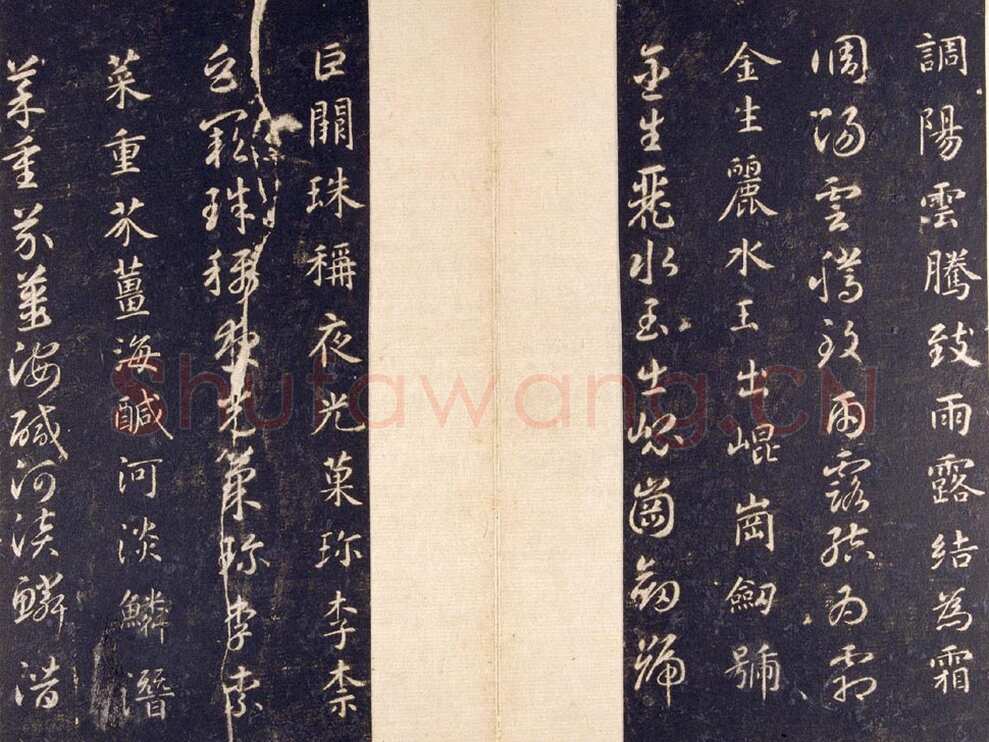 調陽雲騰致雨露結為霜
調陽雲騰致雨露結為霜
金生麗水玉出崐崗劒號
金生麗水玉出崐崗劒號
巨闕珠稱夜光菓珎李柰
巨闕珠稱夜光菓珎李柰
菜重芥薑海醎河淡鱗潛
菜重芥薑海醎河淡鱗潛
Shufawang.CN